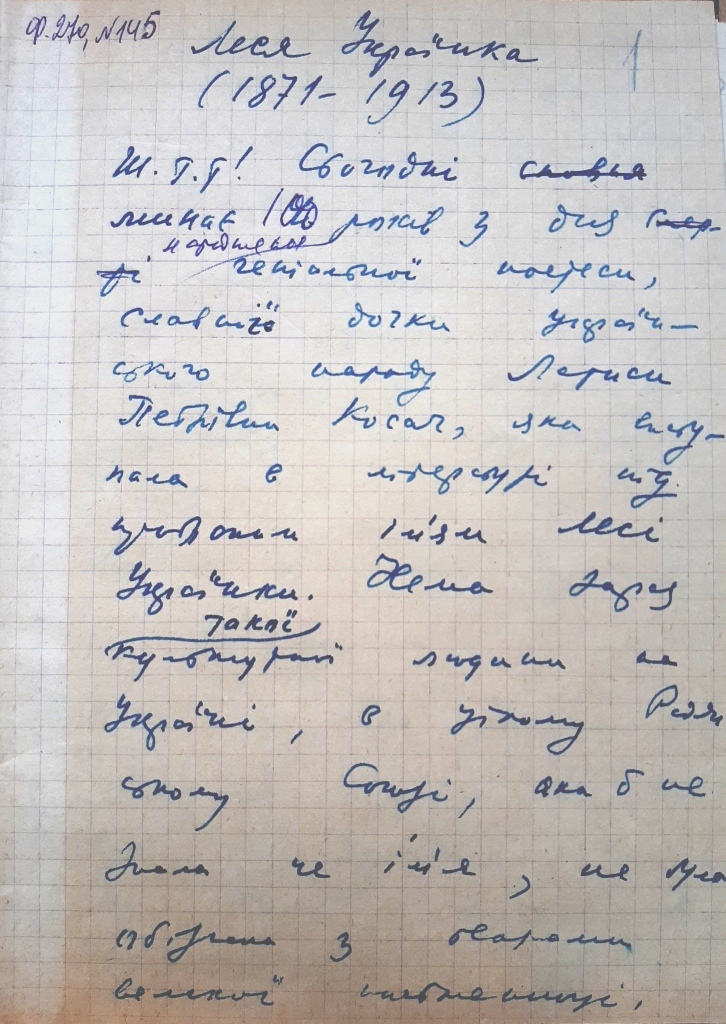 Ф. 270, №145
1
Леся Українка
(1871 - 1913)
Ш. Т. Т! Сьогодні сповня
минає 100 років з дня смер-
народження
ті геніальної поетеси,
славної дочки україн-
ського народу Лариси
Петрівни Косач, яка висту-
пала в літературі під
ім'ям Лесі
Українки. Нема зараз
такої
культурної людини на
Україні, в цілому Радян
ському Союзі, яка б не
знала це ім'я, не була
обізнана з творами
великої